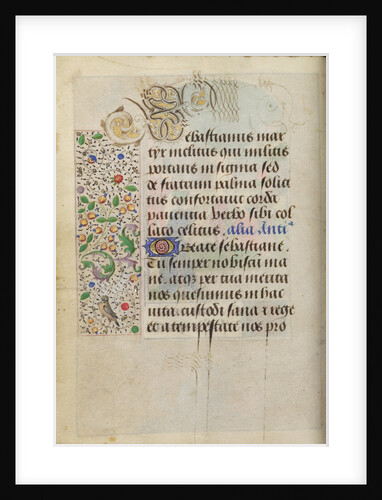 Sebastianus mar
tyr inclitus qui militis
portans insignia sed
de fratrum palma solici
tus confortavit corda
pauentia verbo sibi col
lato celitus. alia anti
O Beate sebastiane.
Tu semper nobiscum ma
ne. atque per tua merita
nos quesumus in hac
uita. custodi sana et rege
et a tempestate nos pro